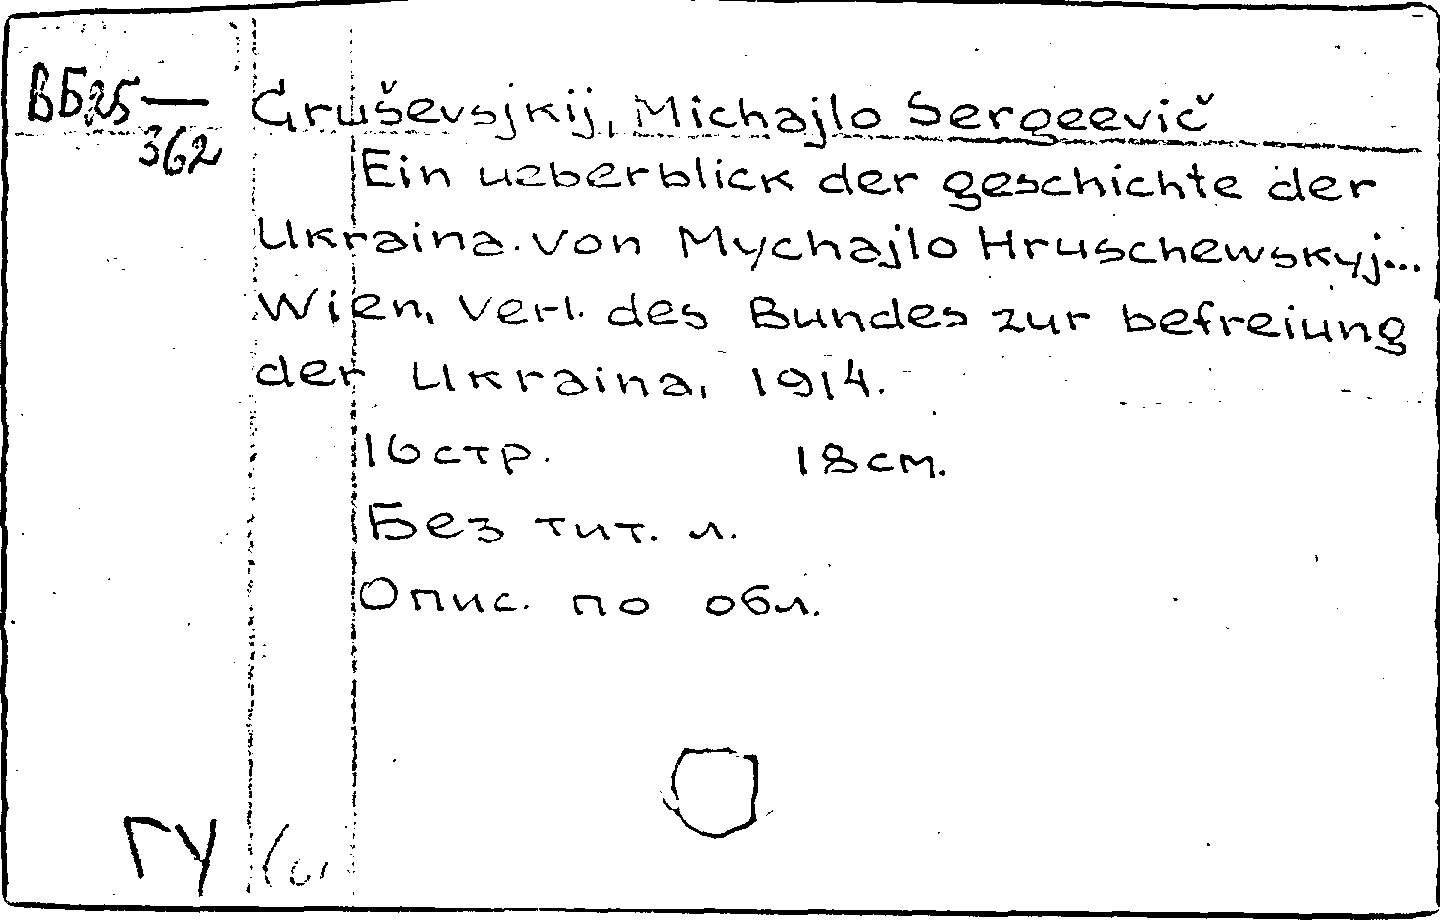 ВБ25—
362
Gruševsjkij, Michajlo Sergeevič
Ein ueberblick der geschichte der
Ukraina. von Mychajlo Hruschewskyj...
Wien, Verl. des Bundes zur befreiung
der Ukraina, 1914.
16 стр. 18 см.
Без тит. л.
Опис. по обл.
ГУ